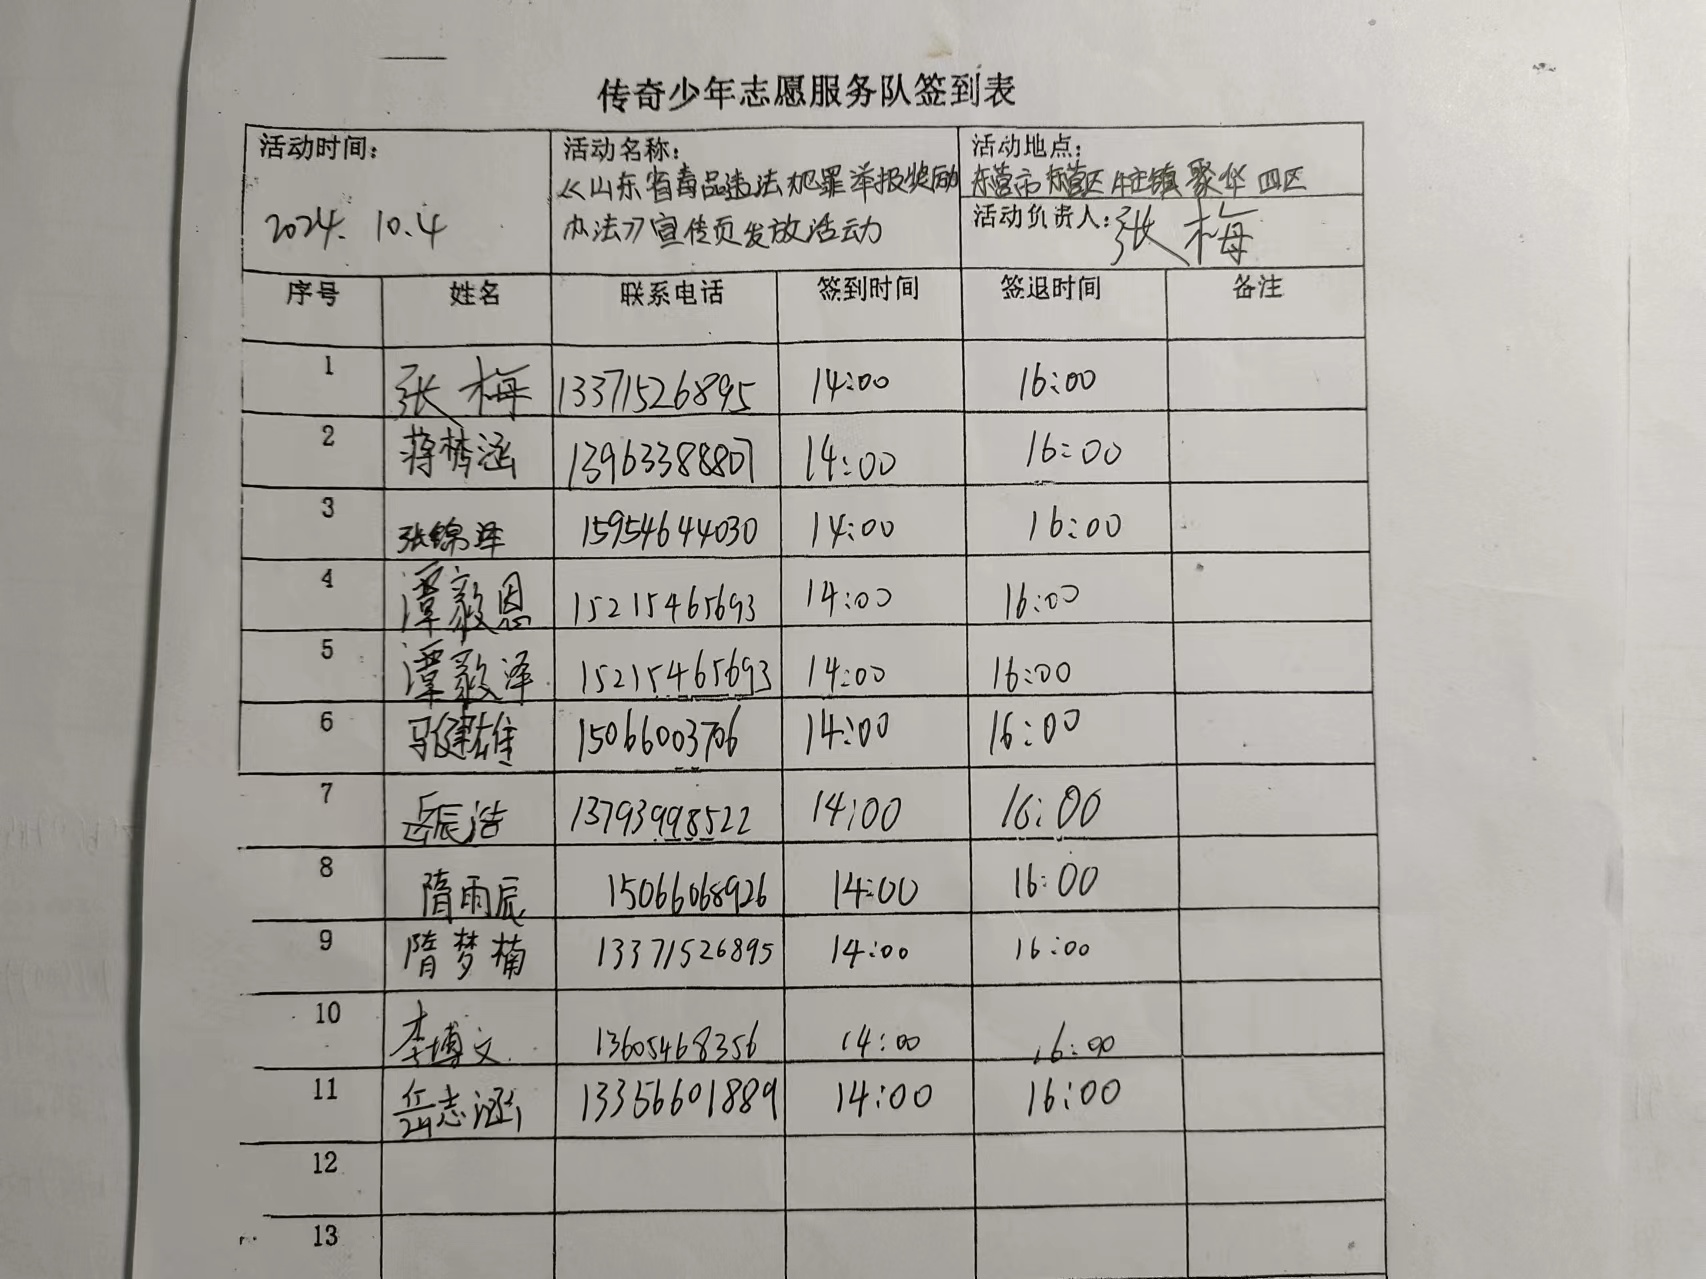 传奇少年志愿服务队签到表
活动时间： 2024. 10.4
活动名称： 《山东省毒品违法犯罪举报奖励
办法》宣传页发放活动
活动地点： 东营市东营区牛庄镇聚华四区
活动负责人：张梅
序号 姓名 联系电话 签到时间 签退时间 备注
1 张梅 13371526895 14:00 16:00
2 蒋梦涵 13963388807 14:00 16:00
3 张锦泽 15954644030 14:00 16:00
4 潭毅恩 15215465693 14:00 16:00
5 潭毅泽 15215465693 14:00 16:00
6 马健雄 15066003706 14:00 16:00
7 岳辰浩 13793998522 14:00 16:00
8 隋雨辰 15066068926 14:00 16:00
9 隋梦楠 13371526895 14:00 16:00
10 李博文 13605468356 14:00 16:00
11 岳志涵 13356601889 14:00 16:00
12
13